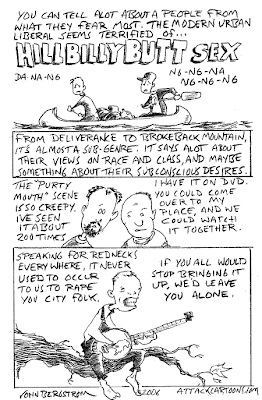 YOU CAN TELL ALOT ABOUT A PEOPLE FROM
WHAT THEY FEAR MOST. THE MODERN URBAN
LIBERAL SEEMS TERRIFIED OF...
HILLBILLY BUTT SEX
DA-NA-NG
NG-NG-NA
NG-NG-NG
FROM DELIVERANCE TO BROKEBACK MOUNTAIN,
IT'S ALMOST A SUB-GENRE. IT SAYS ALOT ABOUT
THEIR VIEWS ON RACE AND CLASS, AND MAYBE
SOMETHING ABOUT THEIR SUBCONSCIOUS DESIRES.
THE "PURTY
MOUTH" SCENE
IS SO CREEPY.
I'VE SEEN
IT ABOUT
200 TIMES
I HAVE IT ON DVD.
YOU COULD COME
OVER TO MY
PLACE, AND WE
COULD WATCH
IT TOGETHER.
SPEAKING FOR REDNECKS
EVERYWHERE, IT NEVER
USED TO OCCUR
TO US TO RAPE
YOU CITY FOLK.
IF YOU ALL WOULD
STOP BRINGING IT
UP, WE'D LEAVE
YOU ALONE.
JOHN BERGSTROM
2006
ATTACKCARTOONS.COM